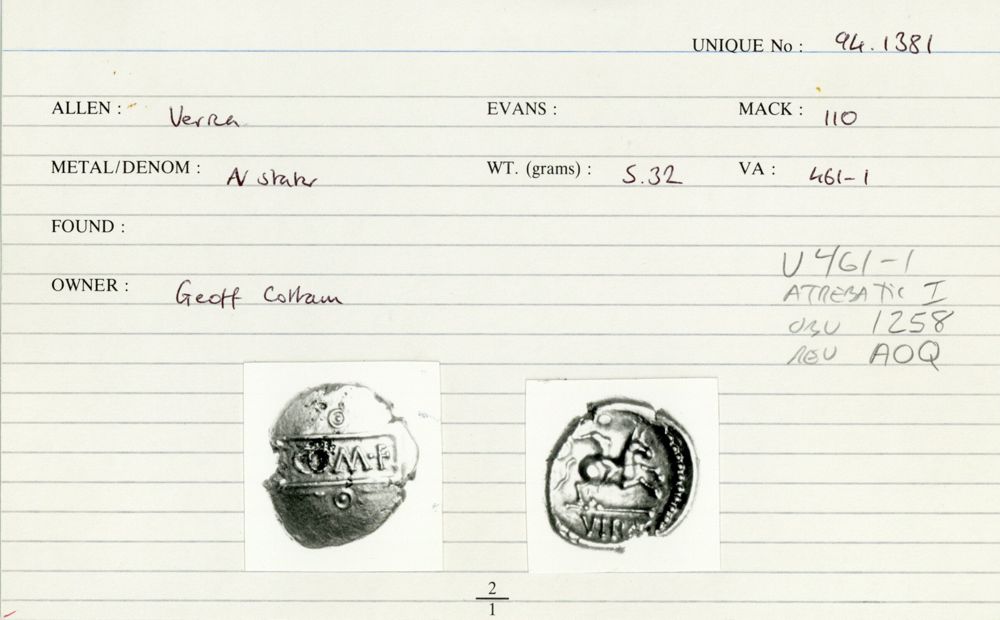 UNIQUE No : 94.1381
ALLEN : Verica EVANS : MACK : 110
METAL/DENOM : AV stater WT. (grams) : 5.32 VA : 461-1
FOUND :
OWNER : Geoff Cottam
V461-1
ATREBATIC I
OBV 1258
REV AOQ
COM·F
VIR
2
1